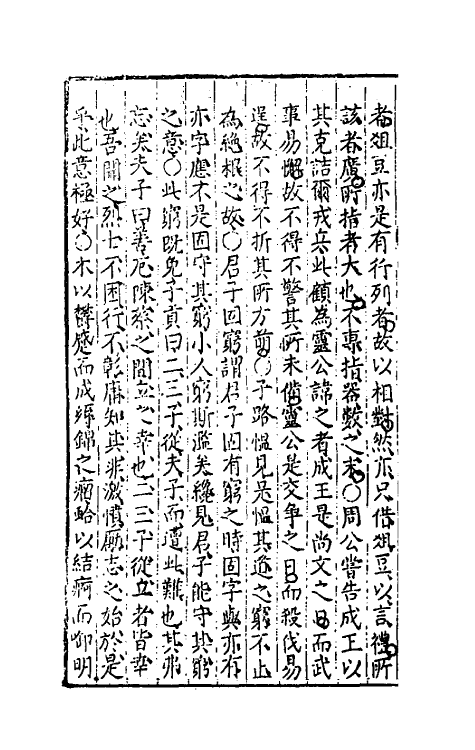 者俎豆亦是有行列者故以相對然亦只借俎豆以言禮所
該者廣所指者大也不專指器數之末○周公嘗告成王以
其克詰爾戎兵此顧為靈公諱之者成王是尚文之日而武
事易懈故不得不警其所未備靈公是交爭之日而殺伐易
逞故不得不折其所方萌○子路慍見是慍其道之窮不止
為絕糧之故○君子固窮謂君子固有窮之時固字與亦有
亦字應才是固守其窮小人窮斯濫矣纔見君子能守其窮
之意○此窮既免子貢曰二三子從夫子而遭此難也其弗
忘矣夫子曰善惡陳蔡之間丘之幸也二三子從丘者皆幸
也吾聞之烈士不困行不彰庸知其非激憤厲志之始於是
乎此意極好○木以鬱蹙而成綈錦之瘤蛤以結痾而啣明